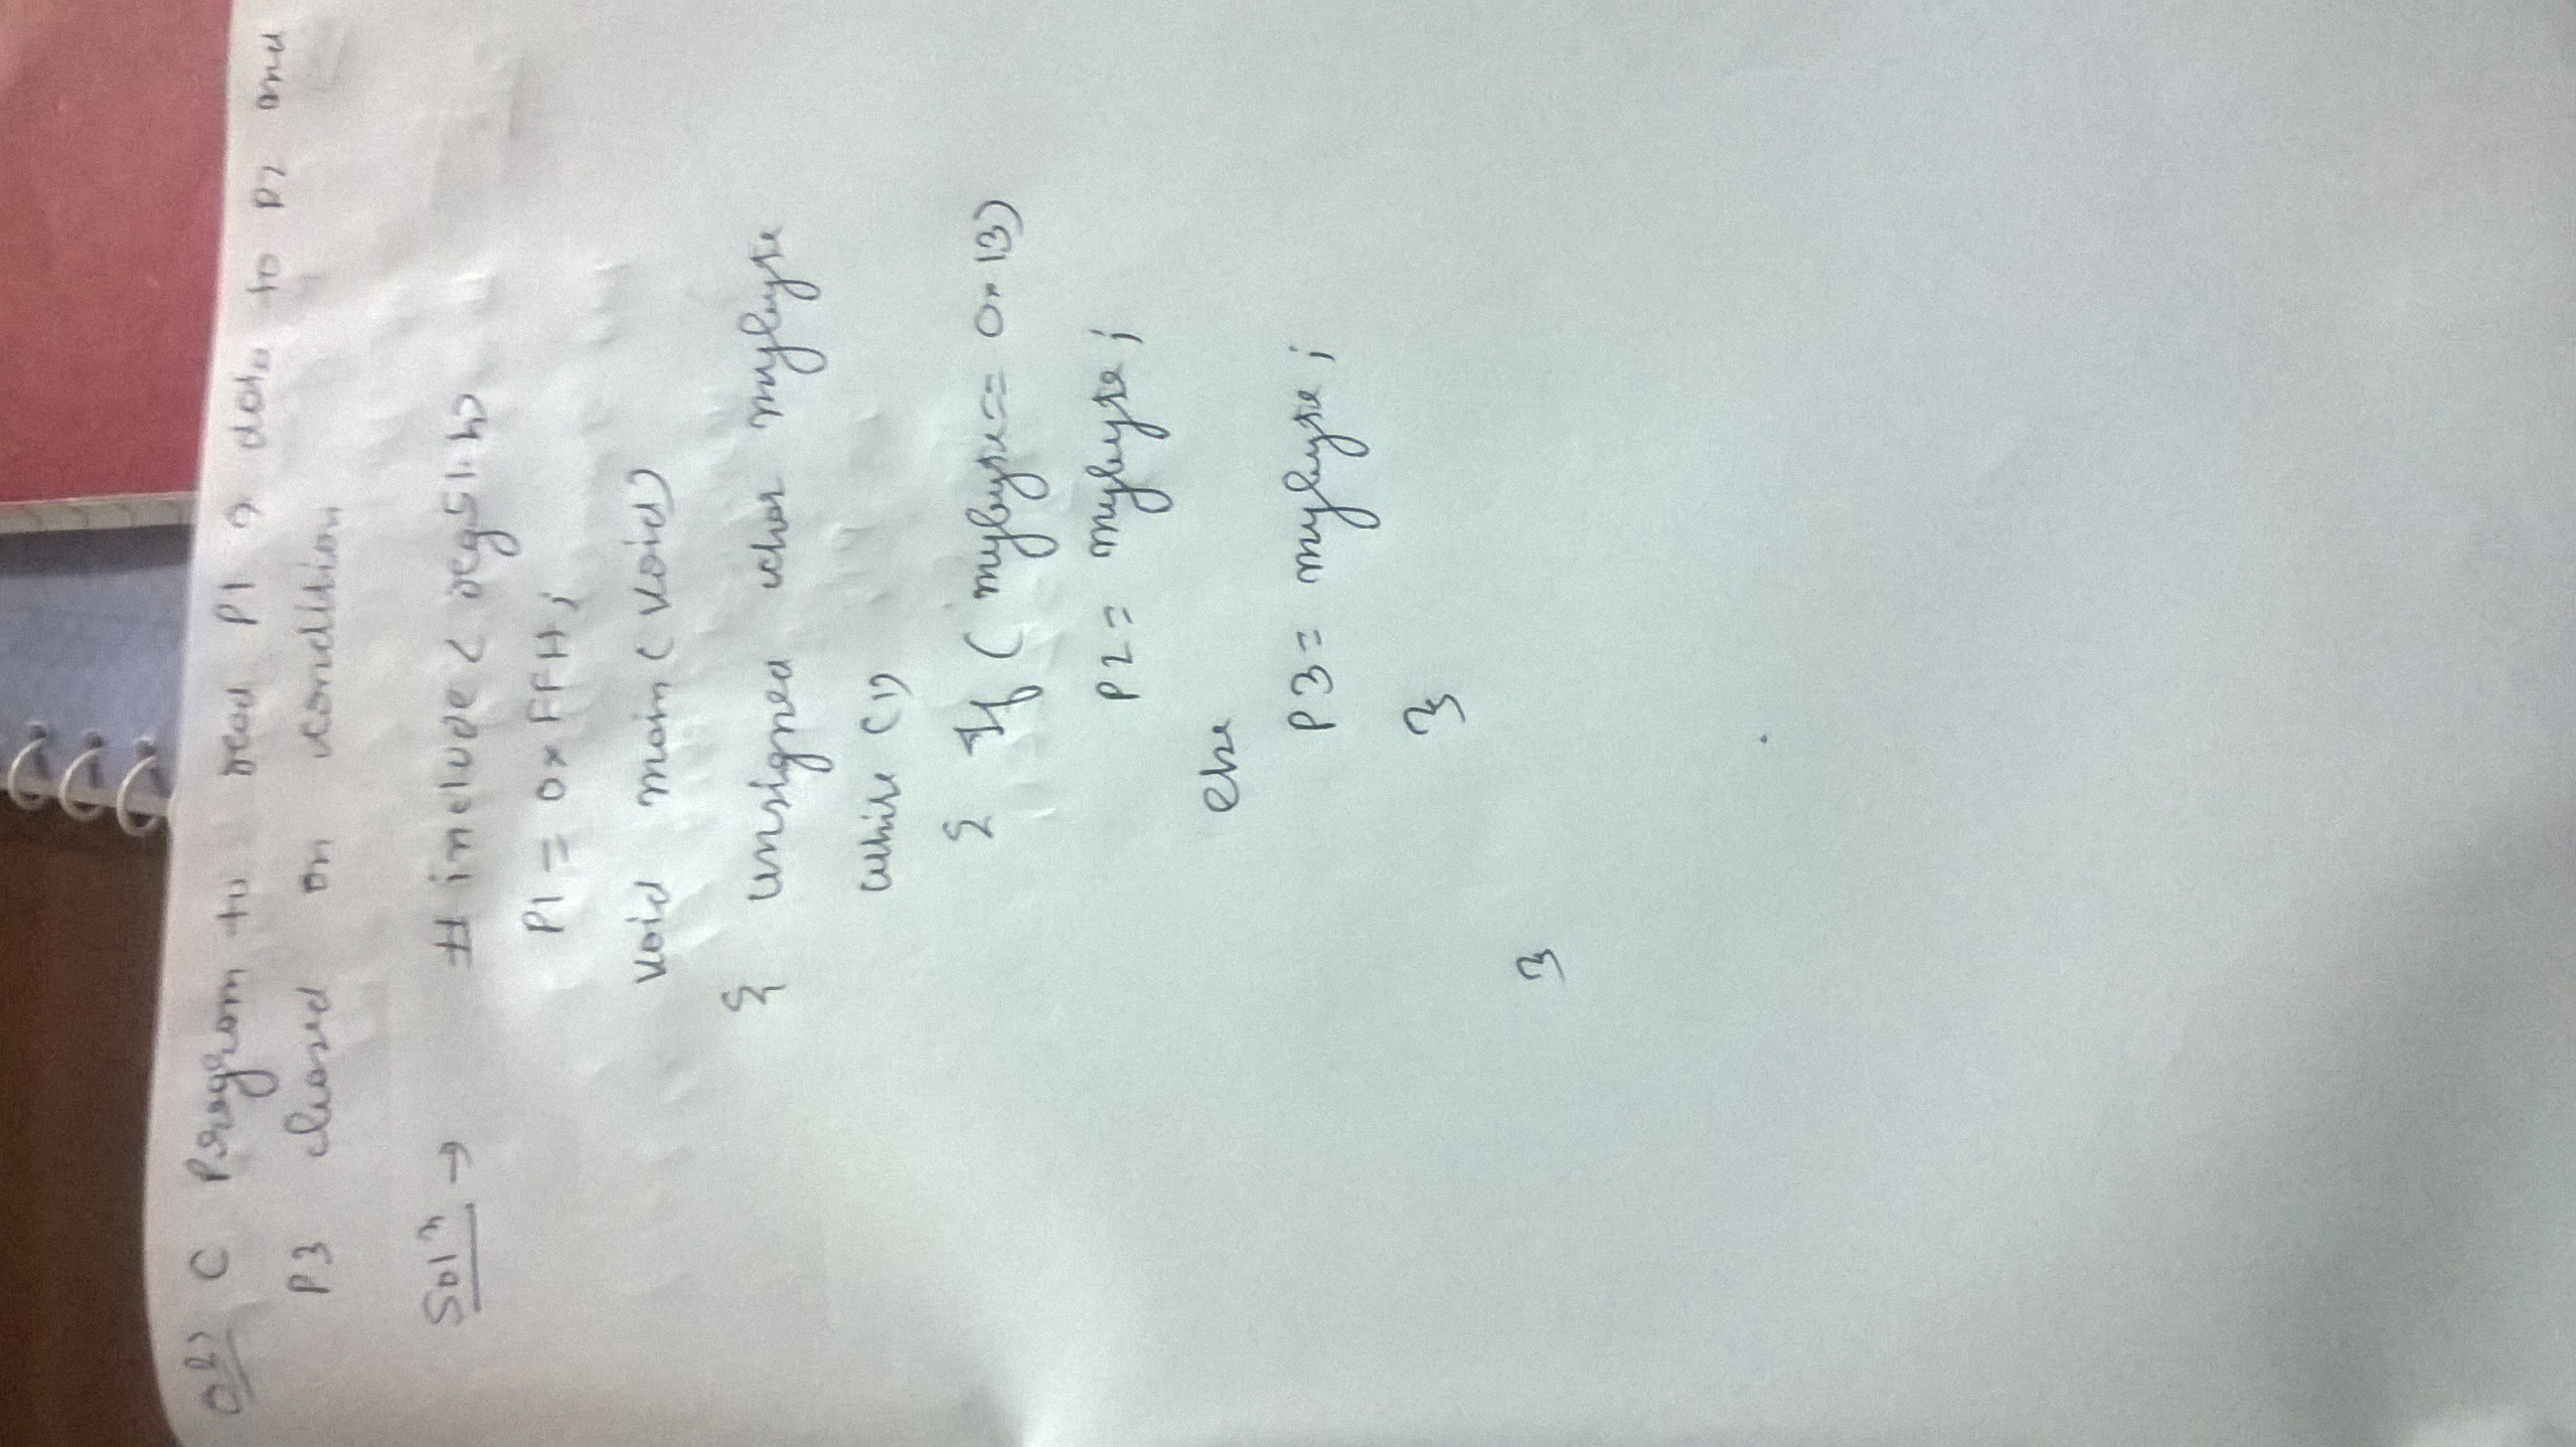 Q2) C Program to read P1 & data to P2 and
P3 based on condition
Solⁿ → # include < reg51.h>
P1 = 0xFFH;
void main ( void)
{ unsigned char mybyte
while (1)
{ If ( mybyte== 0x13)
P2 = mybyte;
else
P3 = mybyte;
}
}